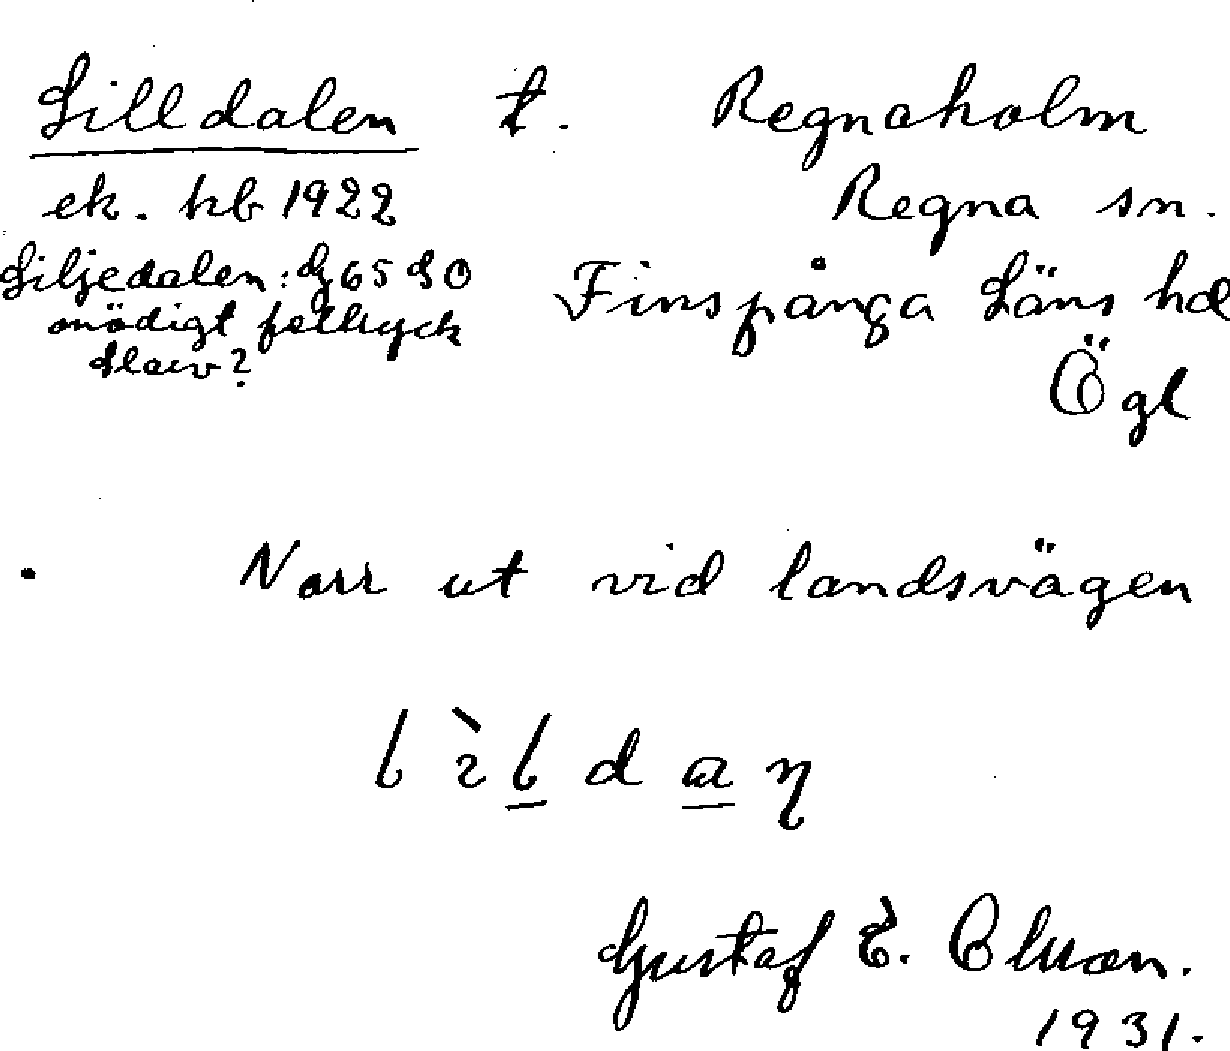 Lilldalen t. Regnaholm
ek. hb 1922 Regna sn.
Liljedalen: G65 SO Finspånga Läns hd
onödigt Ögl
Norr ut vid landsvägen
lìldaŋ
Gustaf E.
1931.